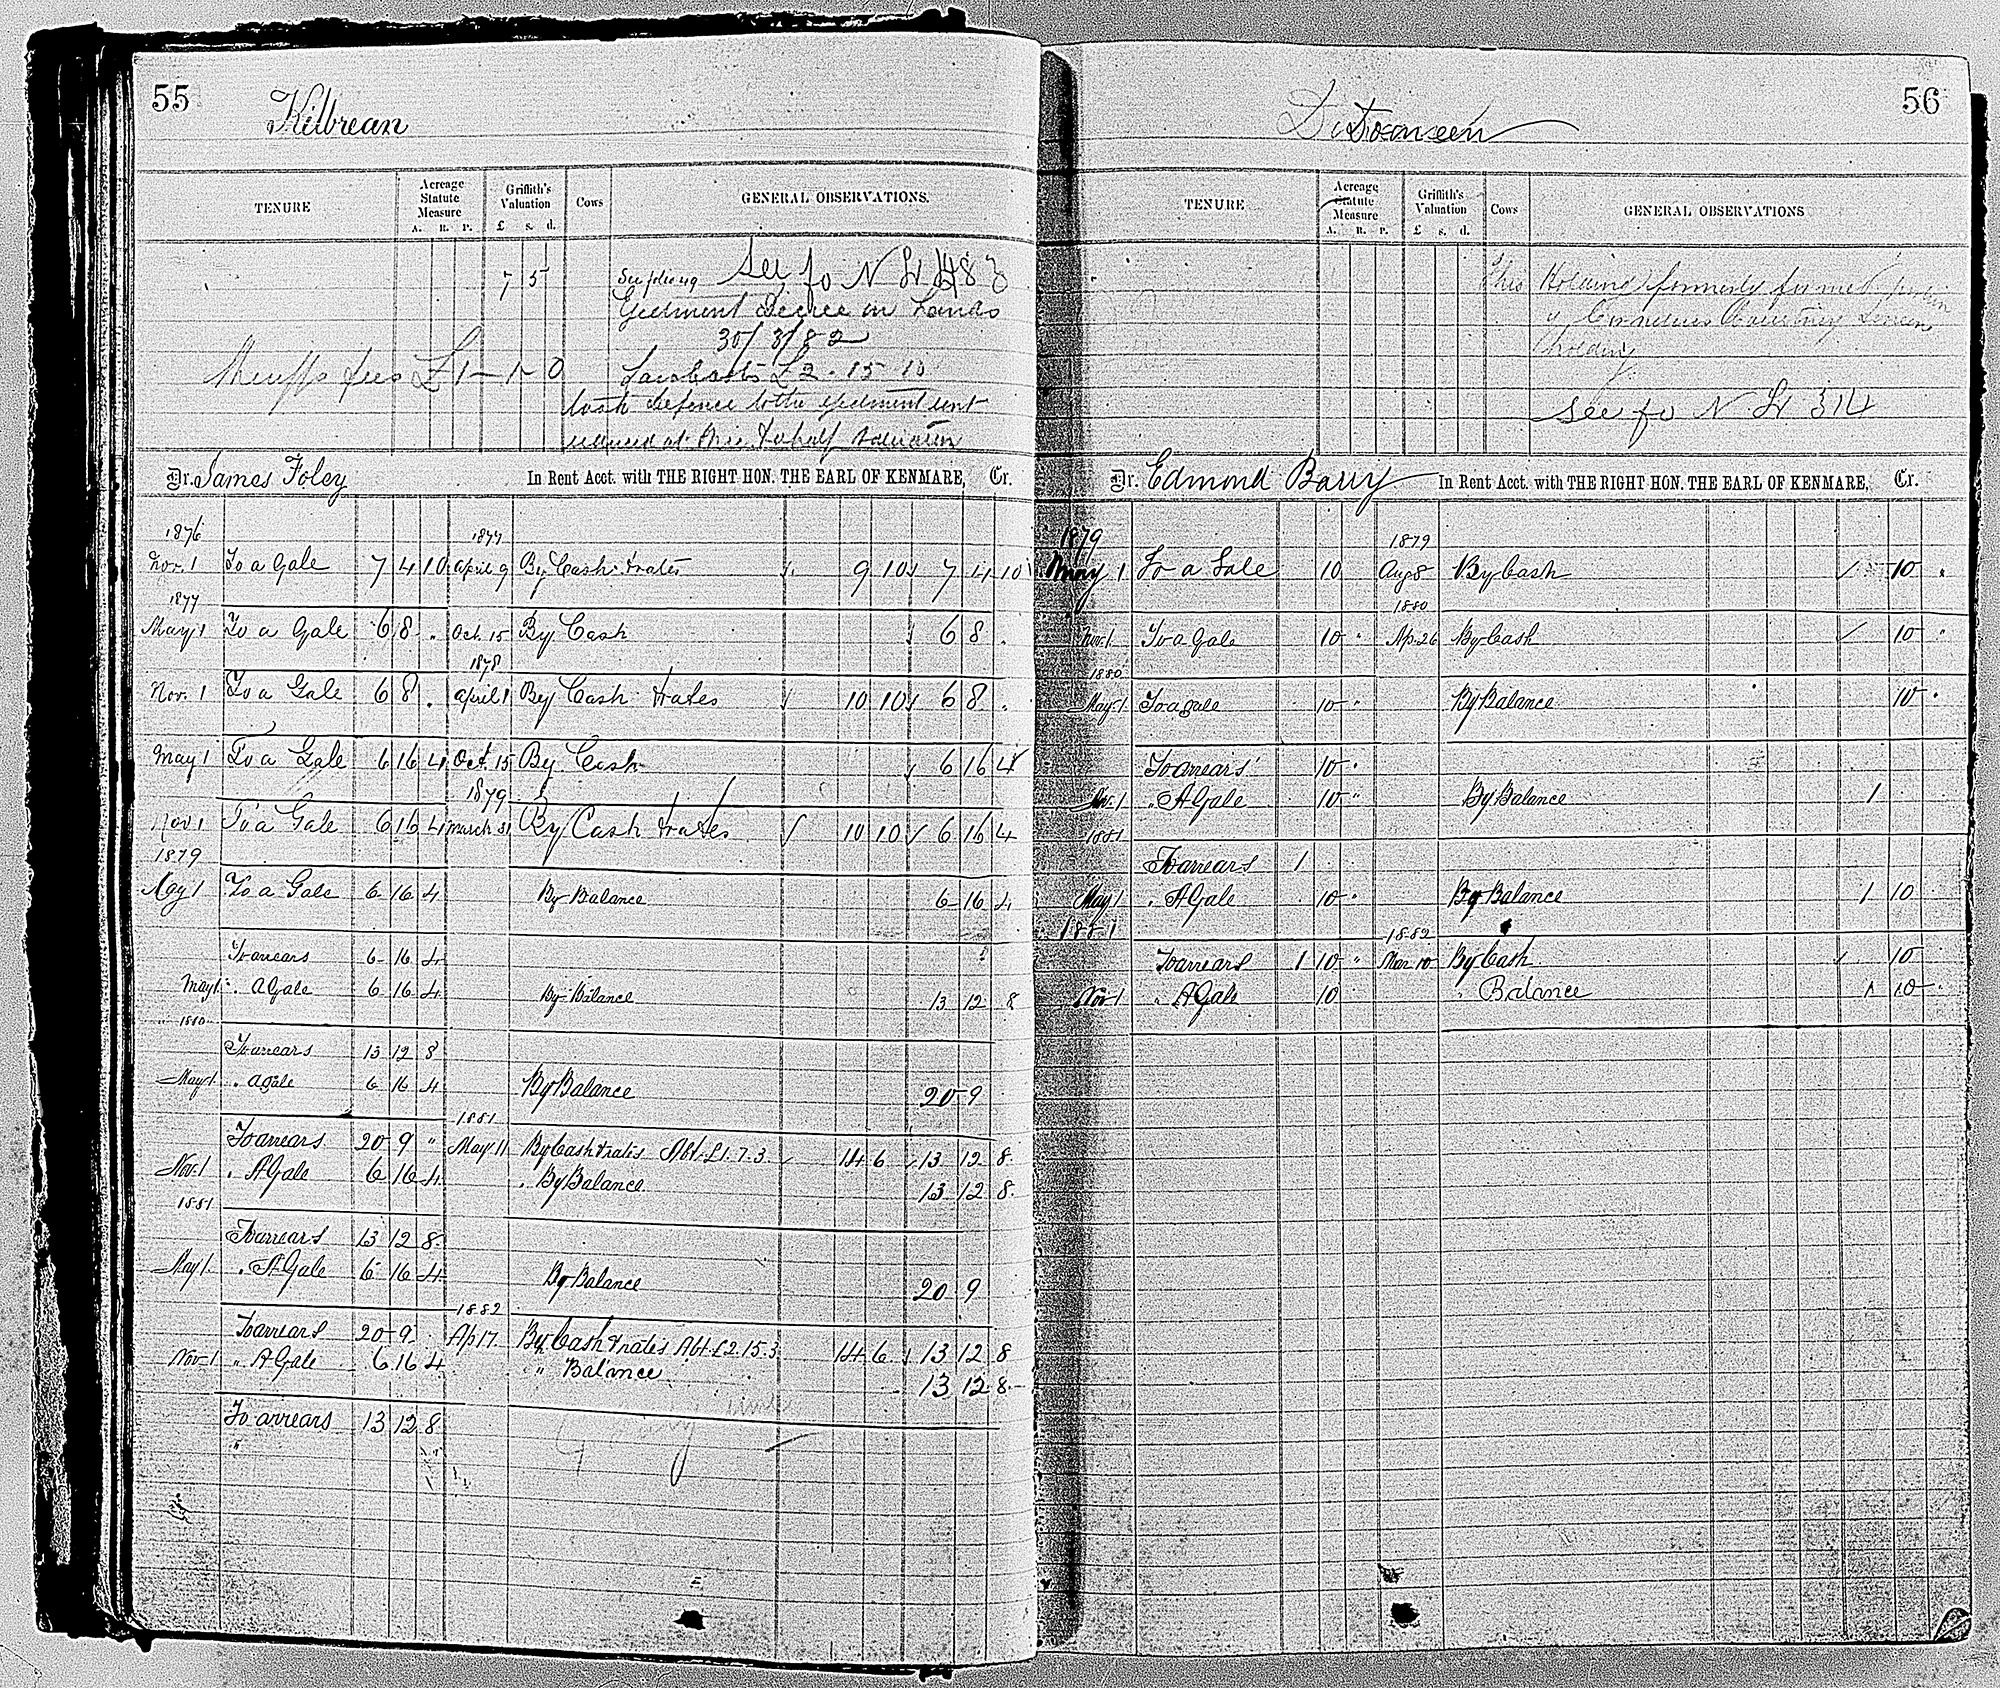 55
Kilbrean
TENURE
Acreage Statute Measure
A. R. P.
Griffith's Valuation
£ s. d.
Cows
GENERAL OBSERVATIONS.
7 5
See folio 49 See fo N Lr 483
Ejectment Decree in Hands
30/3/82
Sheriffs fees £1-1-0
Law Costs £2.15.10
took defence to the ejectment
reduced at
Dr. James Foley In Rent Acct. with THE RIGHT HON. THE EARL OF KENMARE, Cr.
1876 1877
Nov. 1 To a Gale 7 4 10 April 9 By Cash & rates 9 10 7 4 10
1877
May 1 To a Gale 6 8 . Oct. 15 By Cash 6 8 .
1878
Nov. 1 To a Gale 6 8 . April 1 By Cash & rates 10 10 6 8 .
May 1 To a Gale 6 16 4 Oct. 15 By Cash 6 16 4
1879
Nov 1 To a Gale 6 16 4 March 31 By Cash & rates 10 10 6 16 4
1879
May 1 To a Gale 6 16 4 By Balance 6 16 4
To arrears 6 16 4
May 1 " A Gale 6 16 4 By Balance 13 12 8
1880
To arrears 13 12 8
May 1 " A gale 6 16 4 By Balance 20 9
1881
To arrears 20 9 " May 11 By Cash & rates Abt. £1.7.3 14 6 13 12 8
Nov. 1 " A Gale 6 16 4 " By Balance 13 12 8
1881
To arrears 13 12 8
May 1 " A Gale 6 16 4 By Balance 20 9
1882
To arrears 20 9 Ap 17. By Cash & rates Abt. £2.15.3 14 6 13 12 8
Nov 1 " A Gale 6 16 4 " Balance 13 12 8
To arrears 13 12 8
56
TENURE
Acreage Statute Measure
A. R. P.
Griffith's Valuation
£ s. d.
Cows
GENERAL OBSERVATIONS
This Holding formerly formed portion
of Cornelius Courtney
holding
See fo N Lr 314
Dr. Edmond Barry In Rent Acct. with THE RIGHT HON. THE EARL OF KENMARE, Cr.
1879 1879
May 1 To a Gale 10 Aug 8 By Cash 10 .
1880
Nov. 1 To a Gale 10 " Ap. 26 By Cash 10 "
1880
May 1 To a gale 10 " By Balance 10 .
To arrears 10 .
Nov. 1 " A Gale 10 " By Balance 1
1881
To arrears 1
May 1 " A Gale 10 " By Balance 1 10
1881 1882
To arrears 1 10 " Mar 10 By Cash 10
Nov 1 " A Gale 10 " Balance 1 10 .